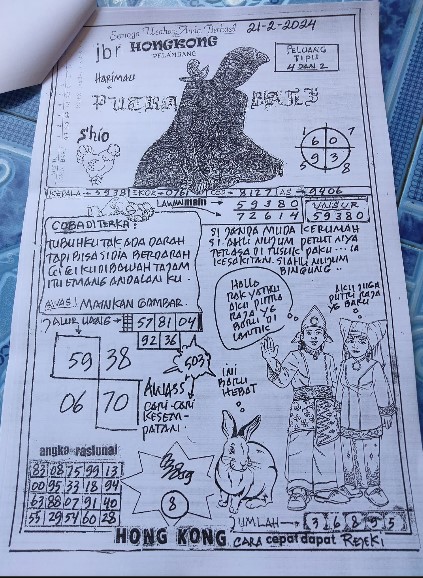 Semoga Usaha Anda Berhasil
21-2-2024
jbr HONGKONG
PALEMBANG
PELUANG
TIPU
4 DAN 2
HARIMAU
PUTRA
S'hio
6 0
9 3
1 7
5 8
KEPALA → 5938 EKOR → 0761 8127 AS → 9406
LAWAN main
59380
72614
UNSUR
59380
COBA DITERKA:
TUBUHKU TAK ADA DARAH
TAPI BISA SIDIA BERDARAH
GIGI KU DIBAWAH TAJAM
ITU EMANG ANDALAN KU.
AWAS! MAINKAN GAMBAR.
SI JANDA MUDA KERUMAH
SI AHLI NUJUM PERUT NIYA
TERASA DI TUSUK PAKU....IA
KESAKITAN SI AHLI NUJUM
BINGUNG..
JALUR UANG →
57 81 04
92 36
59 38
06 70
503
AWASS
CARI-CARI
KESEM-
PATAN
HALLO
PAK YATKU
AKU PUTRA
RAJA YG
BARU DI
LANTIK
AKU JUGA
PUTRI RAJA
YG BARU
INI
BARU
HEBAT
angka rasional
83 08 75 99 13
00 95 33 18 94
63 88 07 91 40
55 29 54 60 28
8
JUMLAH → 3 6 8 9 5
HONG KONG CARA cepat dapat REJEKI